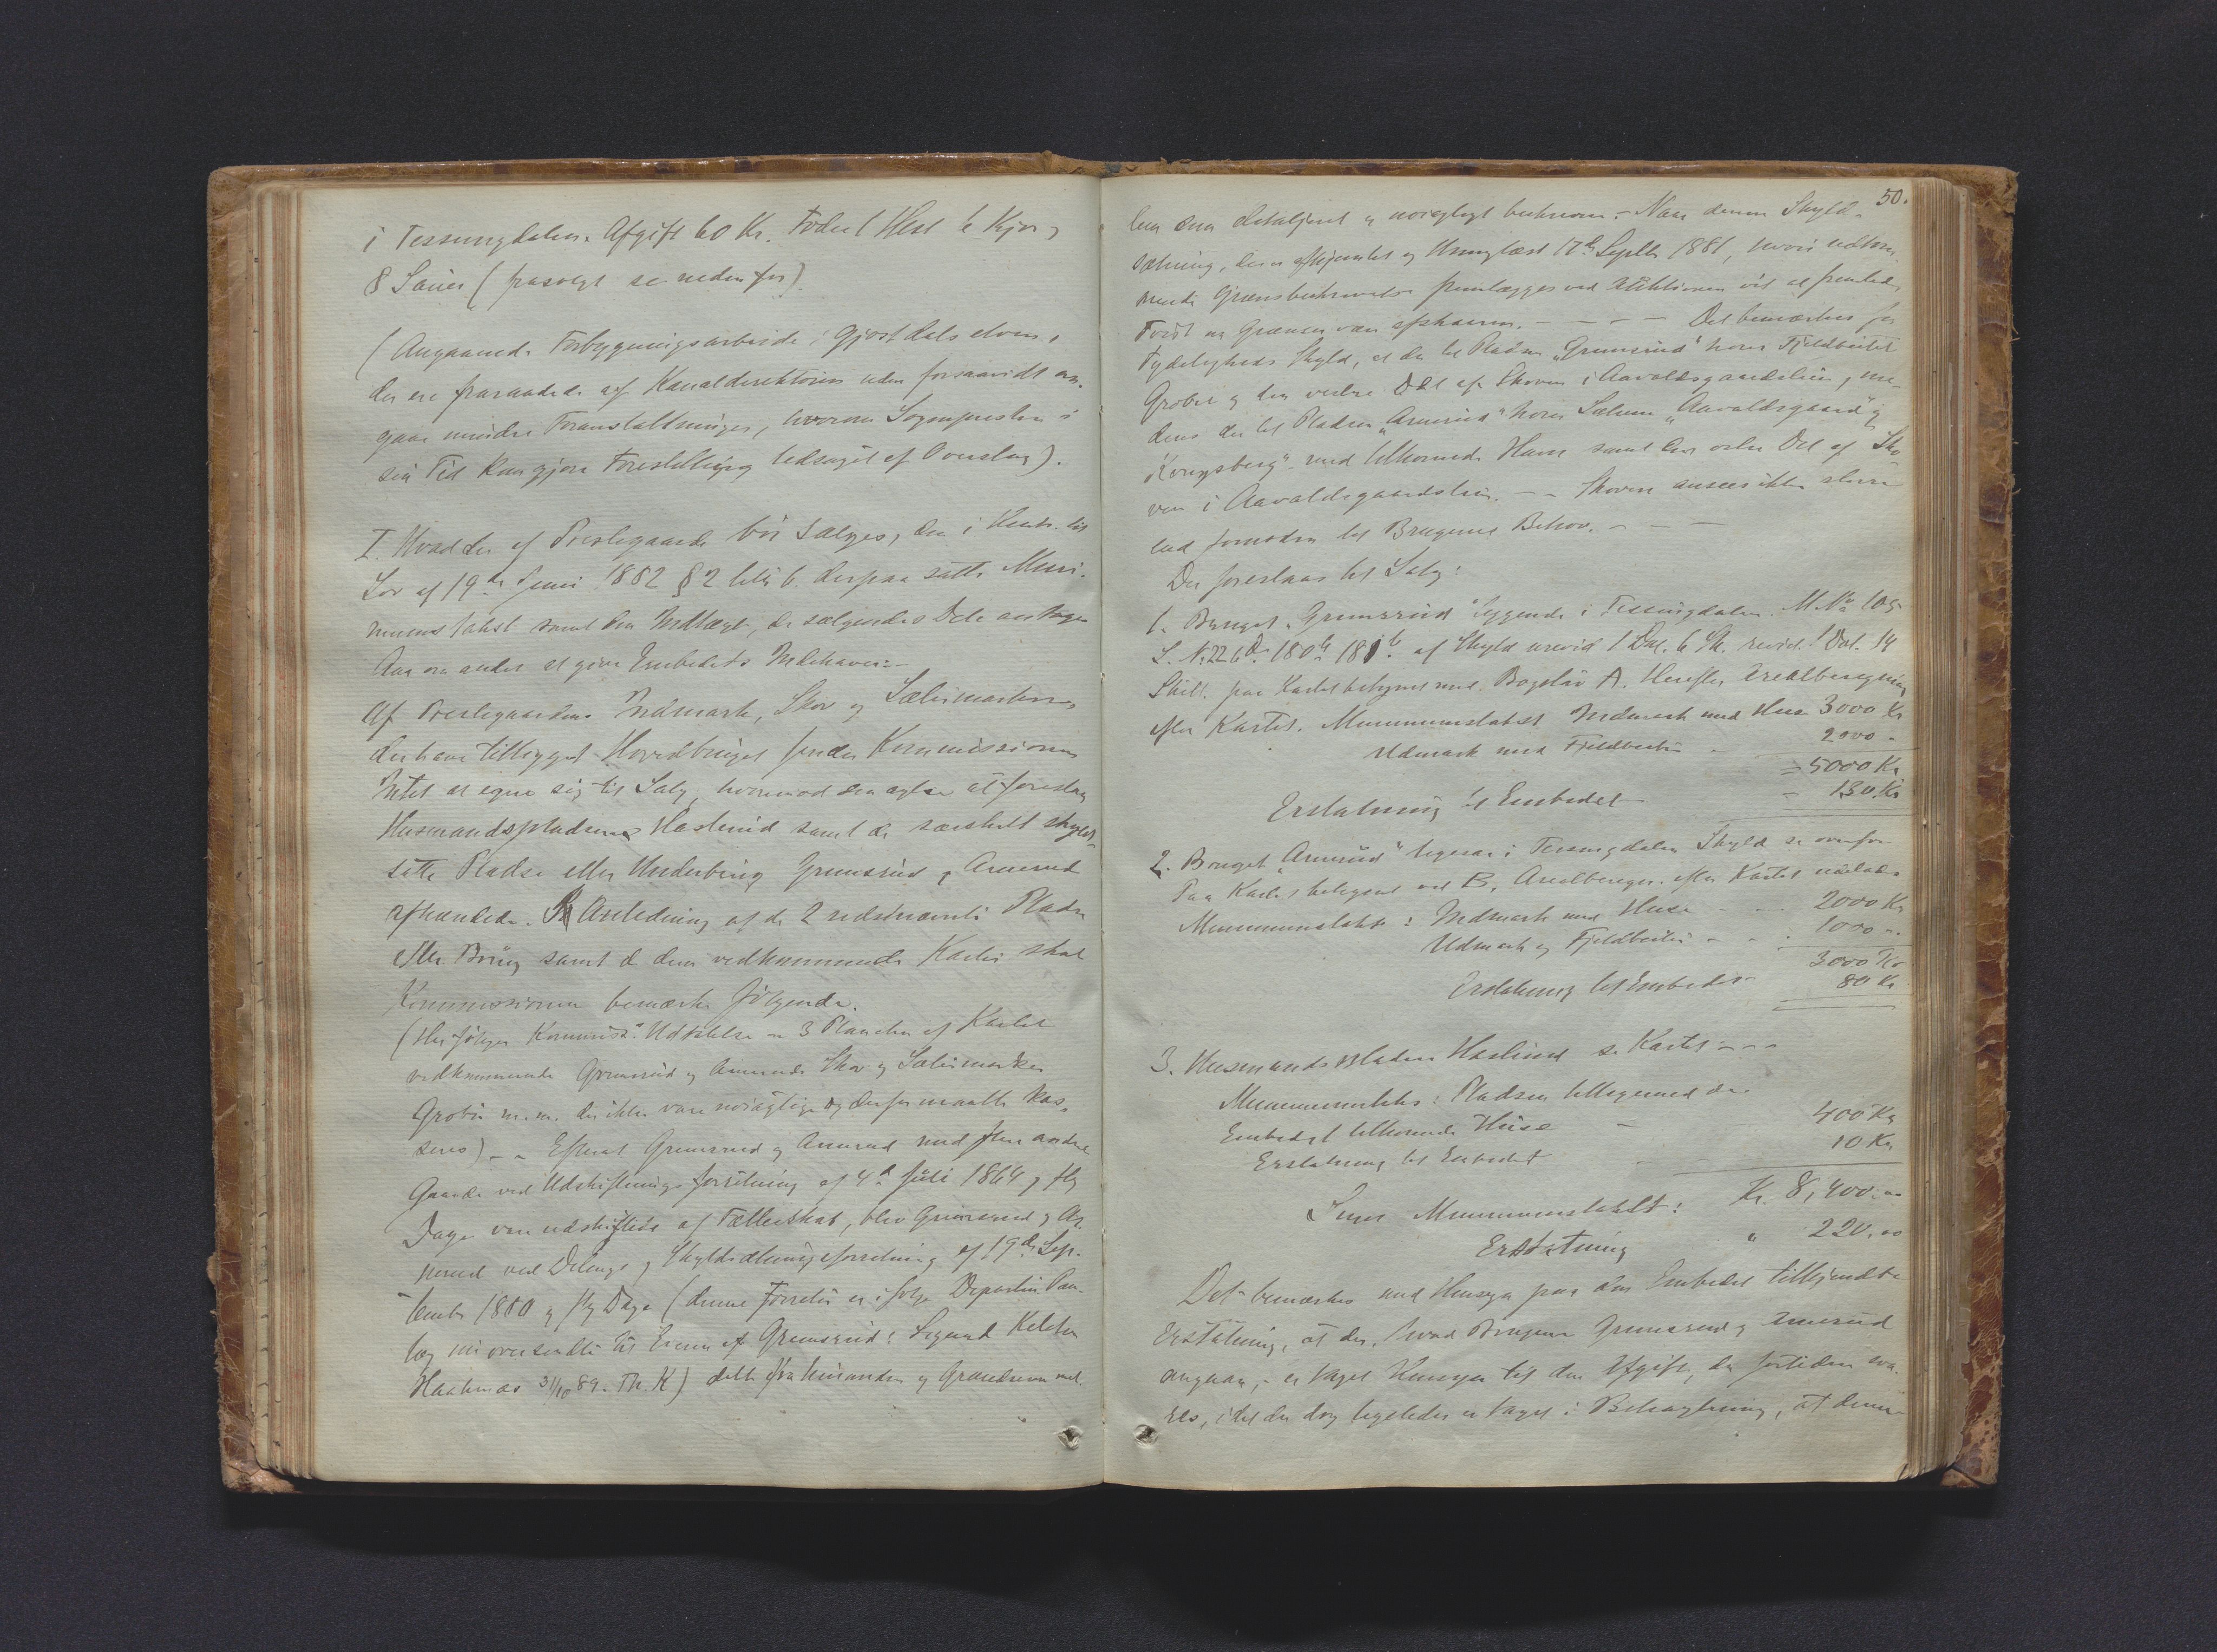 i Tessungdalen. Afgift 60 Kr. Føder 1 Hest 6 Kjør og
8 Sauer (frasolgt se nedenfor).
(Angaaende Forbygningsarbeide i Gjøstdalselven,
der ere fraraadede af Kanaldirektøren uden forsaavidt an-
gaar mindre Foranstaltninger, hvorom Sognepresten i
sin Tid kan gjøre Forestilling ledsaget af Overslag).
I. Hvad der af Prestegaarde bør sælges, den i Henh. til
Lov af 19de Juni 1882 § 2 litr b. derpaa satte Mini-
mumstakst samt den Indtægt, de sælgendes Dele antages
Aar om andet at give Embedets Indehaver.-
Af Prestegaardens Indmark, Skov og Sætermarker
der have tilligget Hovedbruget finder Kommissionen
Intet at egne sig til Salg, hvorimod den agter at foreslaa
Husmandspladsene Haslerud samt de særskilt skyld-
satte Pladse eller Underbrug Grimsrud og Armerud
afhændede. I Anledning af de 2 sidstnævnte Pladse
eller Brug samt de dem vedkommende Karter skal
Kommissionen bemærke følgende.
(Her følger Kommiss. Udtalelse om 3 Plancher af Kartet
vedkommende Grimsrud og Armeruds Skov og Sætermarker
Grobø m.m. der ikke vare nøiagtige og derfor maatte kas-
seres) - - Efterat Grimsrud og Armerud med flere andre
Gaarde ved Udskiftningsforretning af 4de Juli 1864 og flg
Dage vare udskiftede af Fællesskab, blev Grimsrud og Ar-
merud ved Delings og Skyldsætningsforretning af 19de Sep-
tember 1880 og flg Dage (denne Forretn er ifølge Departm. Paa-
læg nu oversendt til Eieren af Grimsrud: Sigurd Kelsen
Haatenæs 31/10 89. Th. K) delte fra hinanden og Grændserne mel-
50.
lem dem detaljeret og nøiagtigt beskreven. - Naar denne Skyld-
sætning, der er afhjemlet og thinglæst 17de Septbr 1881, hvori udtom-
mende Grænsbeskrivelse fremlægges ved Auktionen vil al fremtidig
Tvist om Grænsen være afskaaren. - - - - Det bemærkes for
Tydeligheds Skyld, at der til Pladsen „Grimsrud" hører Fjeldbeitet
Grobø og den vestre Del af Skoven i Aavoldsgaardslien, me-
dens der til Pladsen „Armerud" hører Sæteren „Aavoldsgaard" og
„Kongsberg" med tilhørende Havn samt den østre Del af Sko
ven i Aavoldsgaardslien. - - Skoven ansees ikke større
end fornøden til Brugenes Behov. - - -
Der foreslaas til Salg:
1. Bruget „Grimsrud" liggende i Tessungdalen. M.No 105
L. No 226 180 181 af Skyld urevid 1 Dal. 6 Sk. revid. 1 Dal. 14
Skill. paa Kartet betegnet med Bogstav A. Herefter Arealberegning
efter Kartet. Minimumstakst Indmark med Huse 3000 Kr
Udmark med Fjeldbeite - 2000 -
= 5000 Kr
Erstatning til Embedet - = 130 Kr
2. Bruget „Armerud" ligesaa i Tessungdalen Skyld se ovenfor
Paa Kartet betegnet ved B. Arealberegn. efter Kartet udelades
Minimumstakst: Indmark med Huse - - 2000 Kr
Udmark og Fjeldbeite - - - 1000 -
3000 Kr
Erstatning til Embedet - 80 Kr
3. Husmandspladsen Haslerud se Kartet - - -
Minimumstakst: Pladsen tilligemed de
Embedet tilhørende Huse - 400 Kr
Erstatning til Embedet - 10 Kr
Sum Minimumstakst: Kr. 8,400.00
Erstatning " 220.00
Det bemærkes med Hensyn paa den Embedet tilkjendte
Erstatning, at der, hvad Brugene Grimsrud og Armerud
angaar, - er taget Hensyn til den Afgift, der fortiden sva-
res, idet der dog ligeledes er taget i Betragtning, at denne